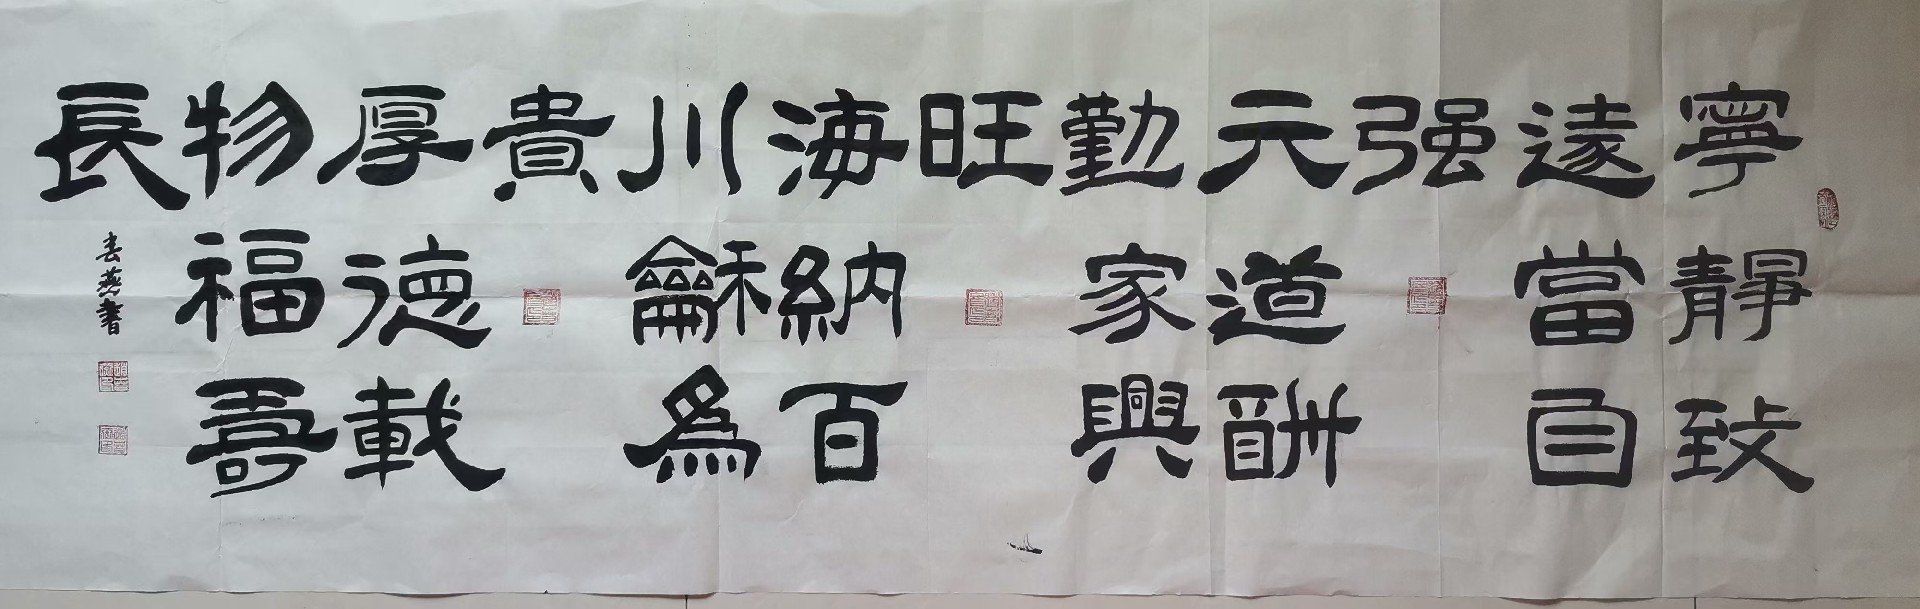 寧靜致
遠當自
强
天道酬
勤家興
旺
海納百
川龢爲
貴
厚德載
物福壽
長
春燕書